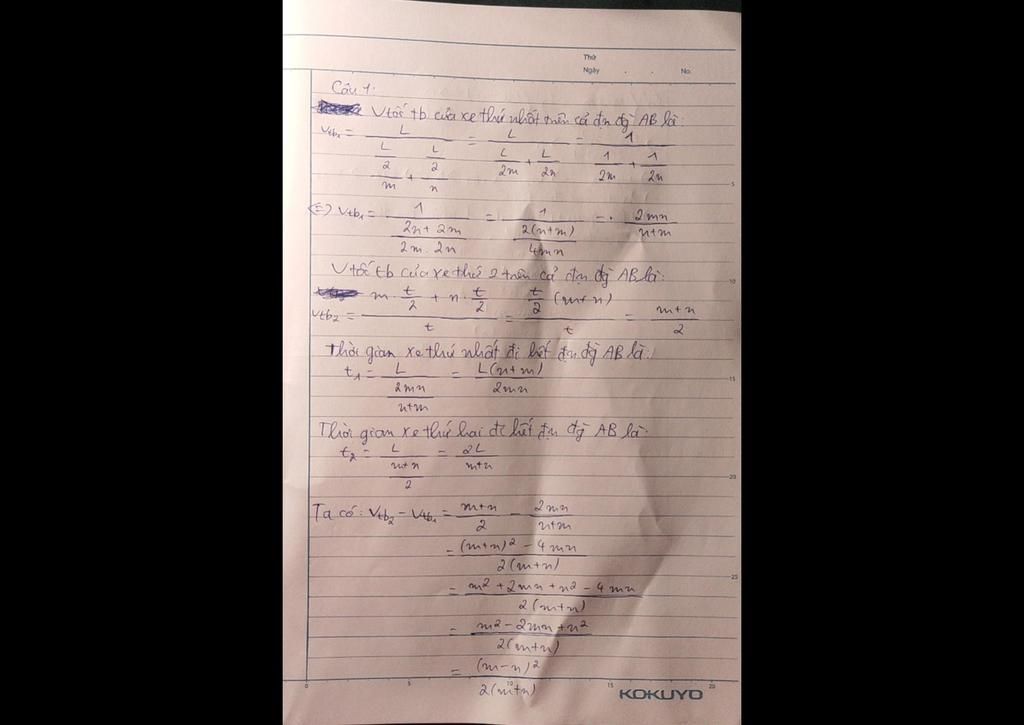 Thứ
Ngày . . No.
Câu 1:
Vtốc tb của xe thứ nhất trên cả đn đg AB là:
Vtb₁ = L / ((L/2)/m + (L/2)/n) = L / (L/2m + L/2n) = 1 / (1/2m + 1/2n)
(=) Vtb₁ = 1 / ((2n + 2m)/(2m . 2n)) = 1 / (2(n+m)/4mn) = . 2mn/(n+m)
Vtốc tb của xe thứ 2 trên cả đn đg AB là:
Vtb₂ = (m . t/2 + n . t/2) / t = (t/2 (m+n)) / t = (m+n)/2
Thời gian xe thứ nhất đi hết đn đg AB là:
t₁ = L / (2mn/(n+m)) = L(n+m)/2mn
Thời gian xe thứ hai đi hết đn đg AB là:
t₂ = L / ((m+n)/2) = 2L/(m+n)
Ta có: Vtb₂ - Vtb₁ = (m+n)/2 - 2mn/(n+m)
= ((m+n)² - 4mn) / 2(m+n)
= (m² + 2mn + n² - 4mn) / 2(m+n)
= (m² - 2mn + n²) / 2(m+n)
= (m-n)² / 2(m+n)
KOKUYO